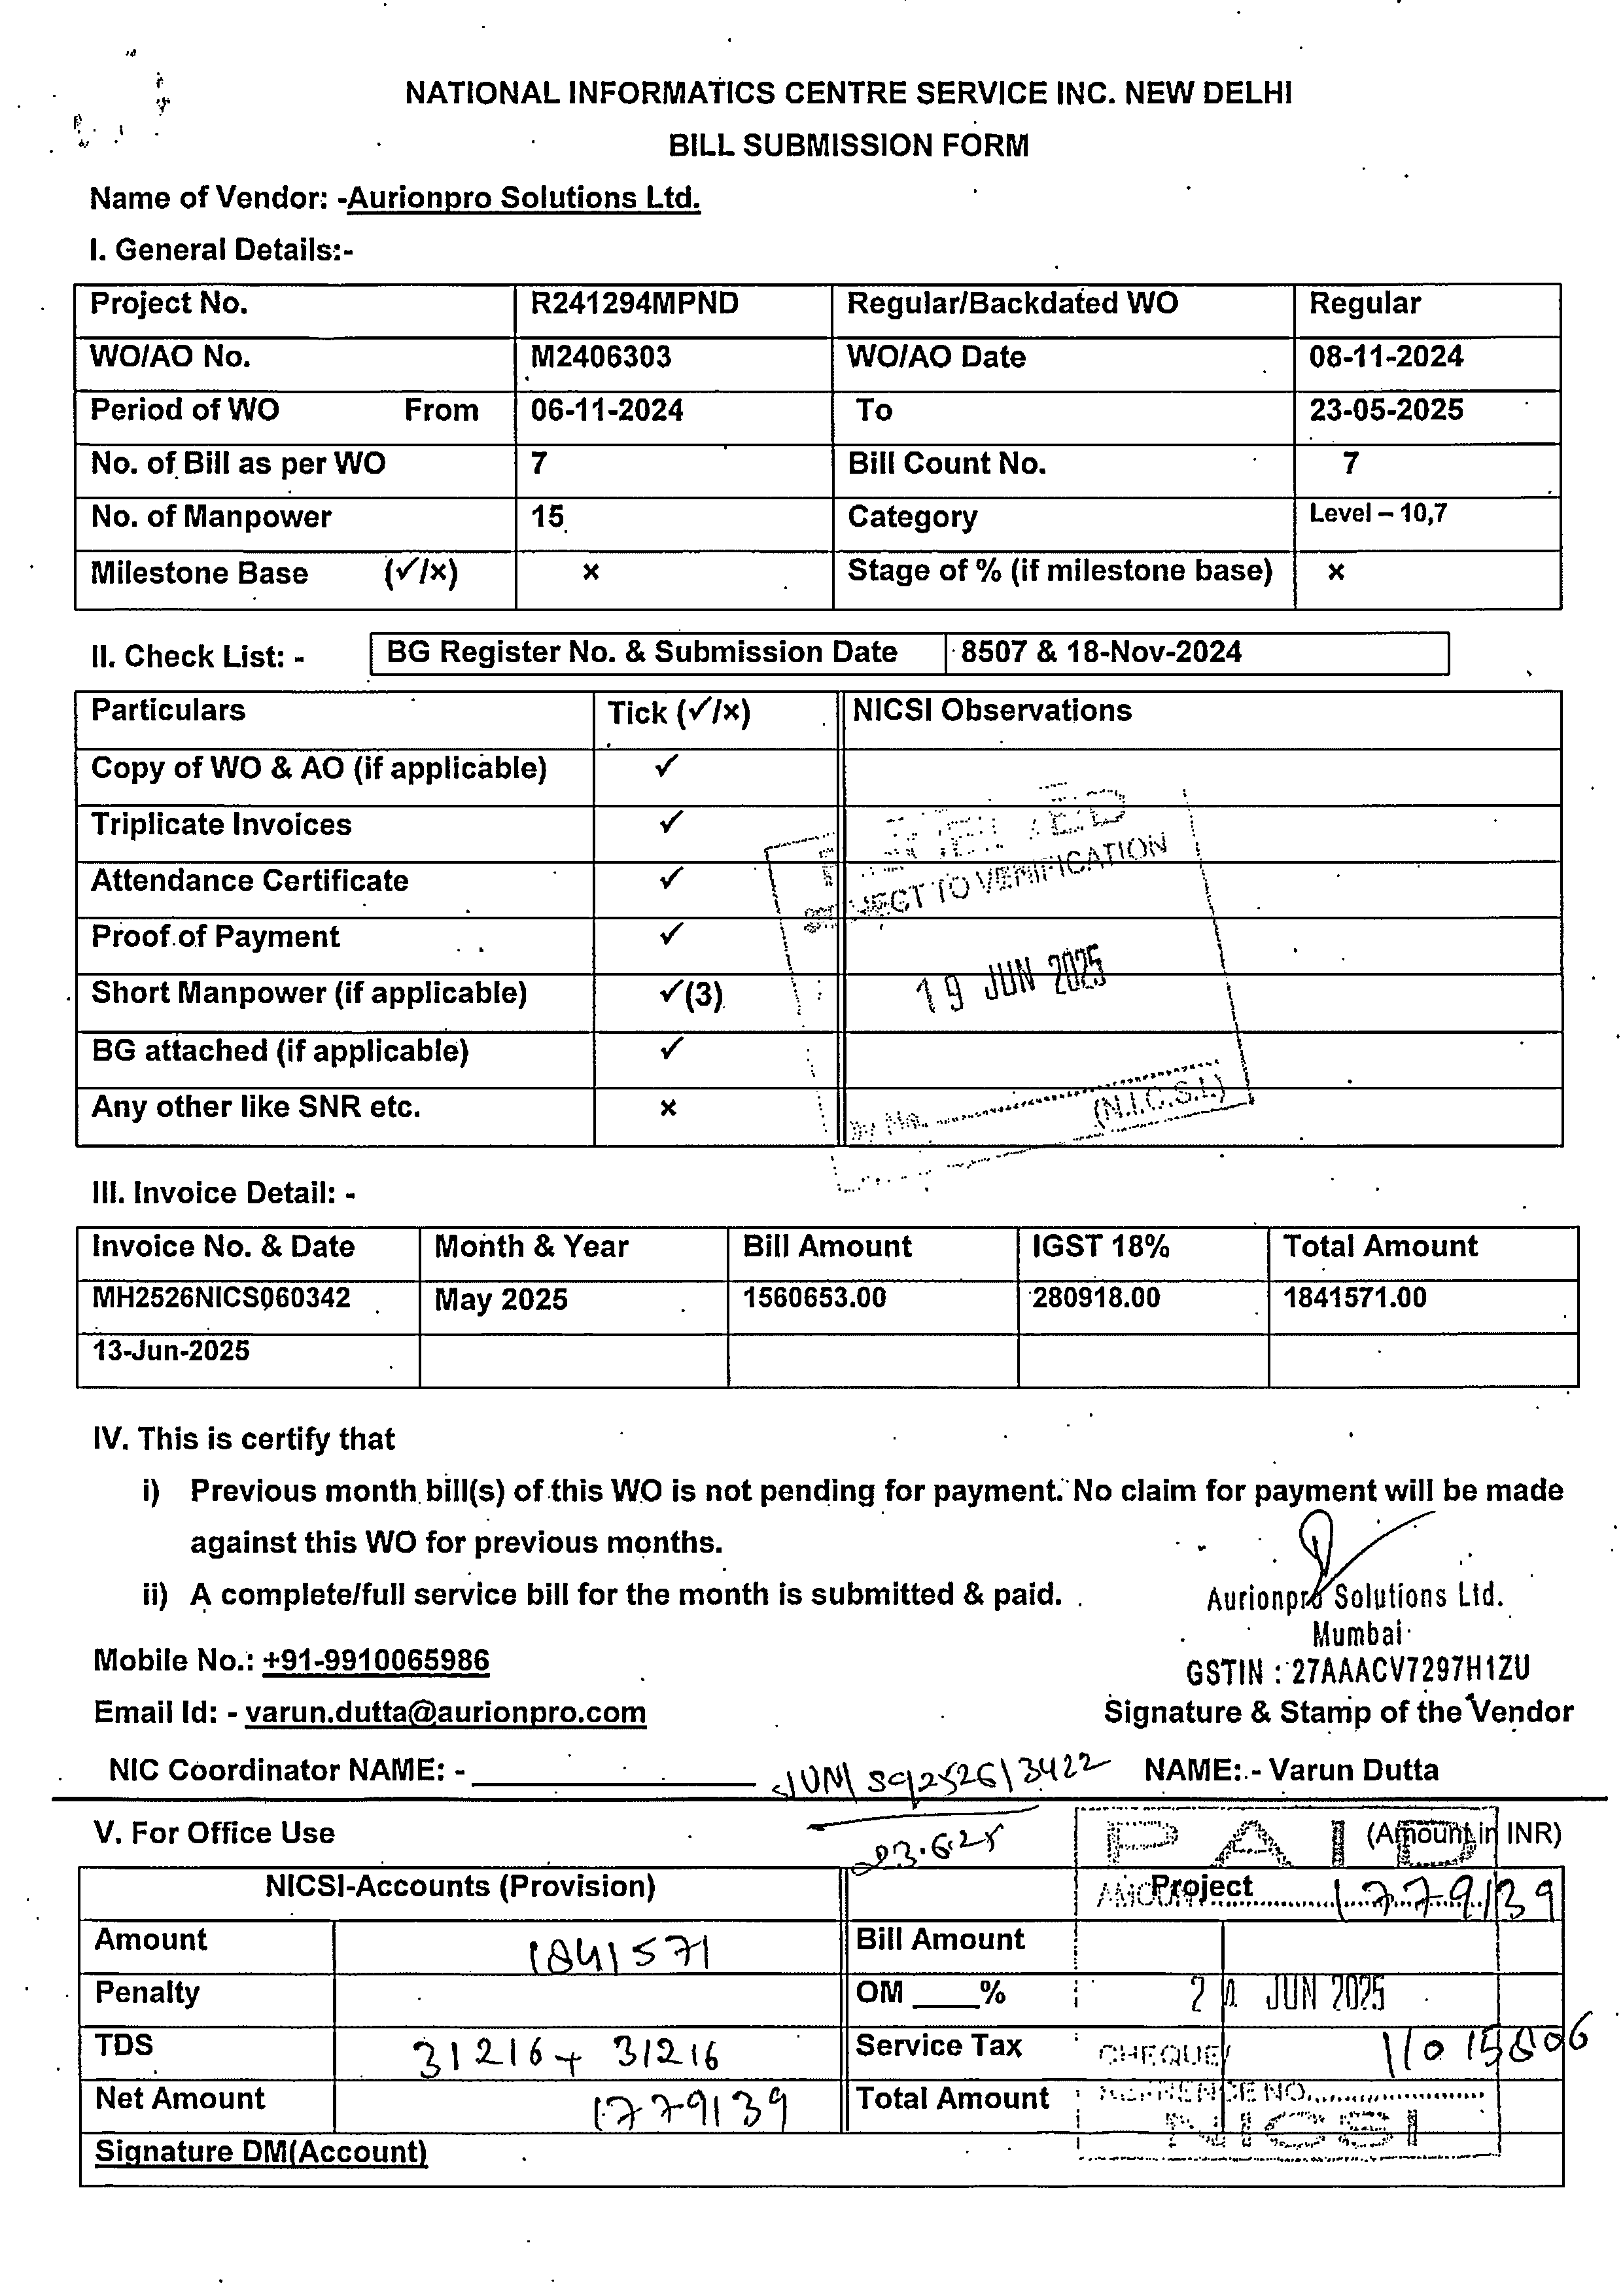 NATIONAL INFORMATICS CENTRE SERVICE INC. NEW DELHI
BILL SUBMISSION FORM
Name of Vendor: -Aurionpro Solutions Ltd.
I. General Details:-
Project No. R241294MPND Regular/Backdated WO Regular
WO/AO No. M2406303 WO/AO Date 08-11-2024
Period of WO From 06-11-2024 To 23-05-2025
No. of Bill as per WO 7 Bill Count No. 7
No. of Manpower 15 Category Level – 10,7
Milestone Base (✓/×) × Stage of % (if milestone base) ×
II. Check List: - BG Register No. & Submission Date 8507 & 18-Nov-2024
Particulars Tick (✓/×) NICSI Observations
Copy of WO & AO (if applicable) ✓
Triplicate Invoices ✓
Attendance Certificate ✓
TO VERIFICATION
Proof of Payment ✓
19 JUN 2025
Short Manpower (if applicable) ✓(3)
BG attached (if applicable) ✓
Any other like SNR etc. ×
(N.I.C.S.I.)
III. Invoice Detail: -
Invoice No. & Date Month & Year Bill Amount IGST 18% Total Amount
MH2526NICS060342 May 2025 1560653.00 280918.00 1841571.00
13-Jun-2025
IV. This is certify that
i) Previous month bill(s) of this WO is not pending for payment. No claim for payment will be made
against this WO for previous months.
ii) A complete/full service bill for the month is submitted & paid.
Aurionpro Solutions Ltd.
Mumbai
GSTIN : 27AAACV7297H1ZU
Mobile No.: +91-9910065986
Email Id: - varun.dutta@aurionpro.com Signature & Stamp of the Vendor
NIC Coordinator NAME: - NAME:- Varun Dutta
V. For Office Use (Amount in INR)
PAID
NICSI-Accounts (Provision) Project
AMOUNT 1779139
Amount 1841571 Bill Amount
Penalty OM ____%
JUN 2025
TDS 31216+ 31216 Service Tax
CHEQUE/
Net Amount 1779139 Total Amount
REFRENCE NO.
NICSI
Signature DM(Account)